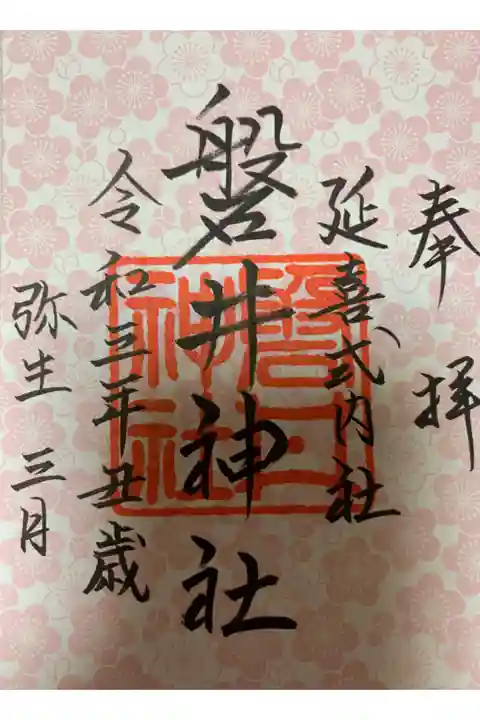 奉拝
延喜式内社
磐井神社
令和三年丑歳
弥生 三月